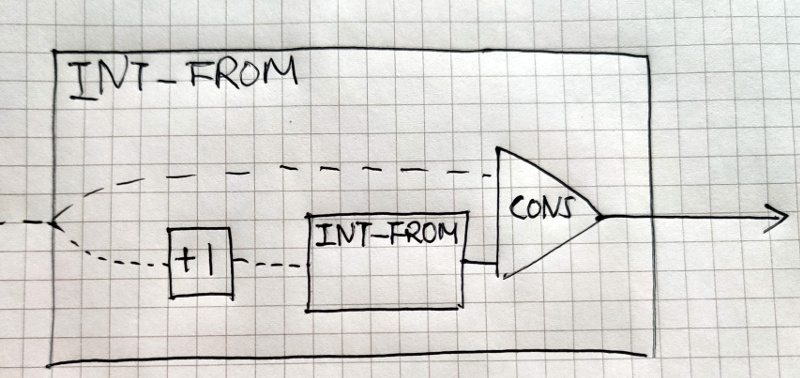 INT-FROM
CONS
INT-FROM
+1